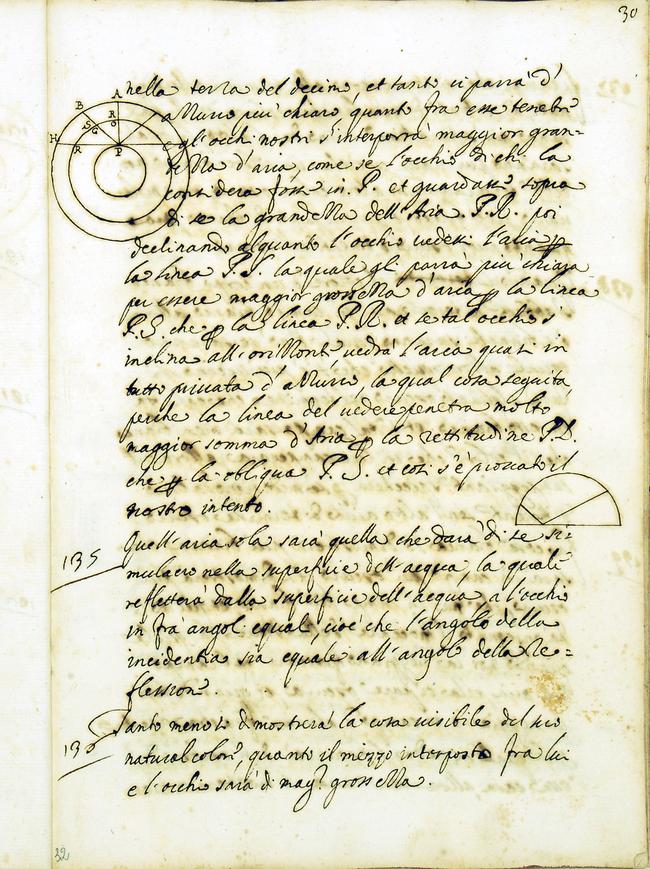 30
A
B
R
S
G
G
H
R
P
nella terza del decimo, et tanto ci parrà d'
azzurro più chiaro, quanto fra esse tenebre
e gl'occhi nostri s'interporrà maggior gran=
dezza d'aria, come se l'occhio di chi la
considera fosse in. P. et guardasse sopra
di se la grandezza dell'Aria. P.R. poi
declinando alquanto l'occhio vedessi l'aria ꝑ
la linea P.S. la quale gli parrà più chiara
per essere maggior grossezza d'aria ꝑ la linea
P.S. che ꝑ la linea P.R. et se tal occhio s'
inclina all'orizzonte vedrà l'aria quasi in
tutto privata d'azzurro, la qual cosa seguita,
perche la linea del vedere penetra molto
maggior somma d'Aria ꝑ la rettitudine P.D.
che ꝑ la obliqua P.S. et cosi s'è provato il
nostro intento.
135
Quell'aria sola sarà quella che darà di se si=
mulacro nella superficie dell'acqua, la quale
refletterà dalla superficie dell'acqua a l'occhio
in frà angoli equali, cioè che l'angolo della
incidentia sia equale all'angolo della Re=
flessione.
136
Tanto meno si dimostrerà la cosa visibile del suo
natural colore, quanto il mezzo interposto fra lui
e l'occhio sarà di magr. grossezza.
32